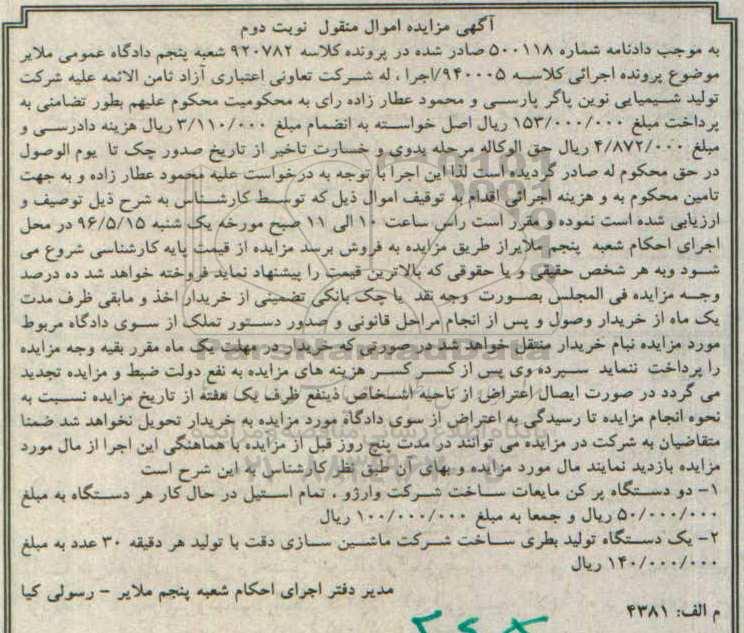 آگهی مزایده اموال منقول نوبت دوم
به موجب دادنامه شماره ۵۰۰۱۱۸ صادر شده در پرونده کلاسه ۹۲۰۷۸۲ شعبه پنجم دادگاه عمومی ملایر
موضوع پرونده اجرائی کلاسه ۹۴۰۰۰۵/اجرا ، له شرکت تعاونی اعتباری آزاد ثامن الائمه علیه شرکت
تولید شیمیایی نوین پاگر پارسی و محمود عطار زاده رای به محکومیت محکوم علیهم بطور تضامنی به
پرداخت مبلغ ۱۵۳/۰۰۰/۰۰۰ ریال اصل خواسته به انضمام مبلغ ۳/۱۱۰/۰۰۰ ریال هزینه دادرسی و
مبلغ ۴/۸۷۲/۰۰۰ ریال حق الوکاله مرحله بدوی و خسارت تاخیر از تاریخ صدور چک تا یوم الوصول
در حق محکوم له صادر گردیده است لذا این اجرا با توجه به درخواست علیه محمود عطار زاده و به جهت
تامین محکوم به و هزینه اجرائی اقدام به توقیف اموال ذیل که توسط کارشناس به شرح ذیل توصیف و
ارزیابی شده است نموده و مقرر است راس ساعت ۱۰ الی ۱۱ صبح مورخه یک شنبه ۹۶/۵/۱۵ در محل
اجرای احکام شعبه پنجم ملایراز طریق مزایده به فروش برسد مزایده از قیمت پایه کارشناسی شروع می
شود وبه هر شخص حقیقی و یا حقوقی که بالاترین قیمت را پیشنهاد نماید فروخته خواهد شد ده درصد
وجه مزایده فی المجلس بصورت وجه نقد یا چک بانکی تضمینی از خریدار اخذ و مابقی ظرف مدت
یک ماه از خریدار وصول و پس از انجام مراحل قانونی و صدور دستور تملک از سوی دادگاه مربوط
مورد مزایده بنام خریدار منتقل خواهد شد درصورتی که خریدار در مهلت یک ماه مقرر بقیه وجه مزایده
را پرداخت ننماید سپرده وی پس از کسر کسر هزینه های مزایده به نفع دولت ضبط و مزایده تجدید
می گردد در صورت ایصال اعتراض از ناحیه اشخاص ذینفع ظرف یک هفته از تاریخ مزایده نسبت به
نحوه انجام مزایده تا رسیدگی به اعتراض از سوی دادگاه مورد مزایده به خریدار تحویل نخواهد شد ضمنا
متقاضیان به شرکت در مزایده می توانند در مدت پنج روز قبل از مزایده با هماهنگی این اجرا از مال مورد
مزایده بازدید نمایند مال مورد مزایده و بهای آن طبق نظر کارشناس به این شرح است
۱- دو دستگاه پر کن مایعات ساخت شرکت وارژو ، تمام استیل در حال کار هر دستگاه به مبلغ
۵۰/۰۰۰/۰۰۰ ریال و جمعا به مبلغ ۱۰۰/۰۰۰/۰۰۰ ریال
۲- یک دستگاه تولید بطری ساخت شرکت ماشین سازی دقت با تولید هر دقیقه ۳۰ عدد به مبلغ
۱۴۰/۰۰۰/۰۰۰ ریال
مدیر دفتر اجرای احکام شعبه پنجم ملایر - رسولی کیا
م الف: ۴۳۸۱